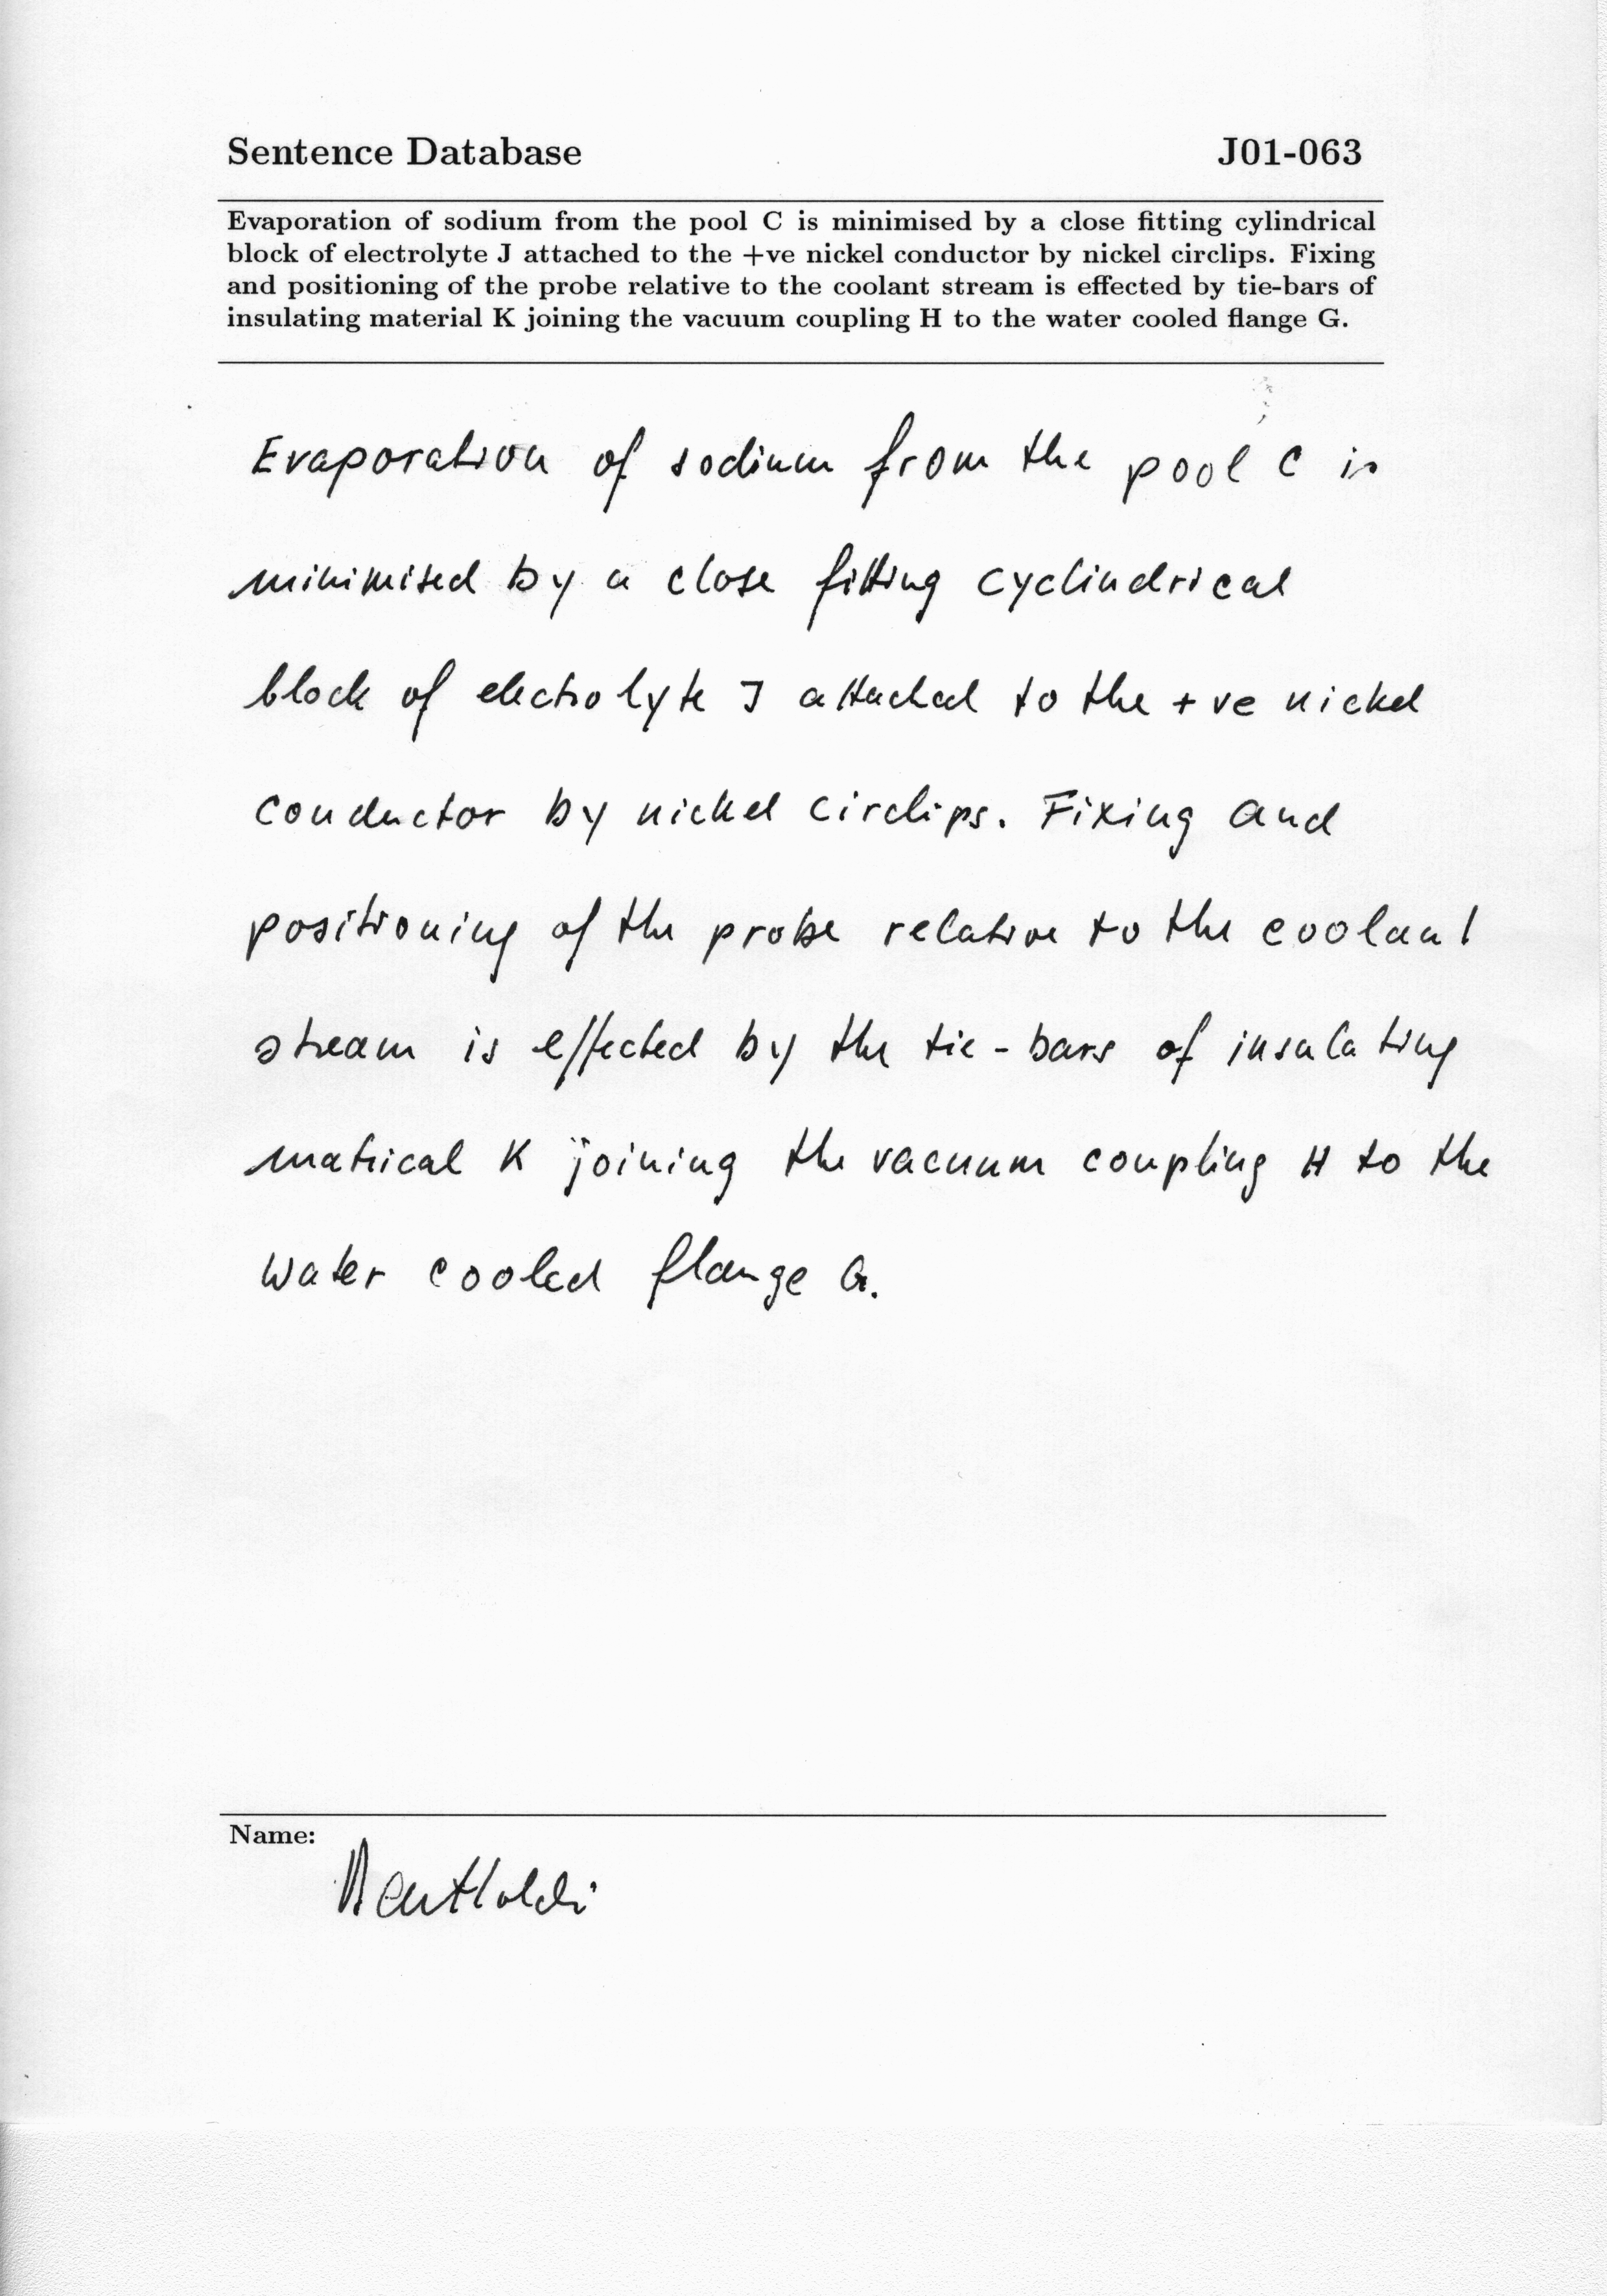 Sentence Database J01-063
Evaporation of sodium from the pool C is minimised by a close fitting cylindrical
block of electrolyte J attached to the +ve nickel conductor by nickel circlips. Fixing
and positioning of the probe relative to the coolant stream is effected by tie-bars of
insulating material K joining the vacuum coupling H to the water cooled flange G.
Evaporation of sodium from the pool C is
minimised by a close fitting cyclindrical
block of electrolyte J attached to the +ve nickel
conductor by nickel circlips. Fixing and
positioning of the probe relative to the coolant
stream is effected by the tie-bars of insulating
matrical K joining the vacuum coupling H to the
water cooled flange G.
Name: